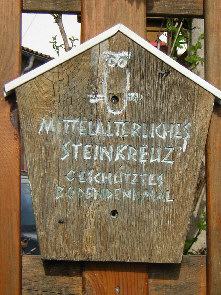 MITTELALTERLICHES
STEINKREUZ
GESCHÜTZTES
BODENDENKMAL